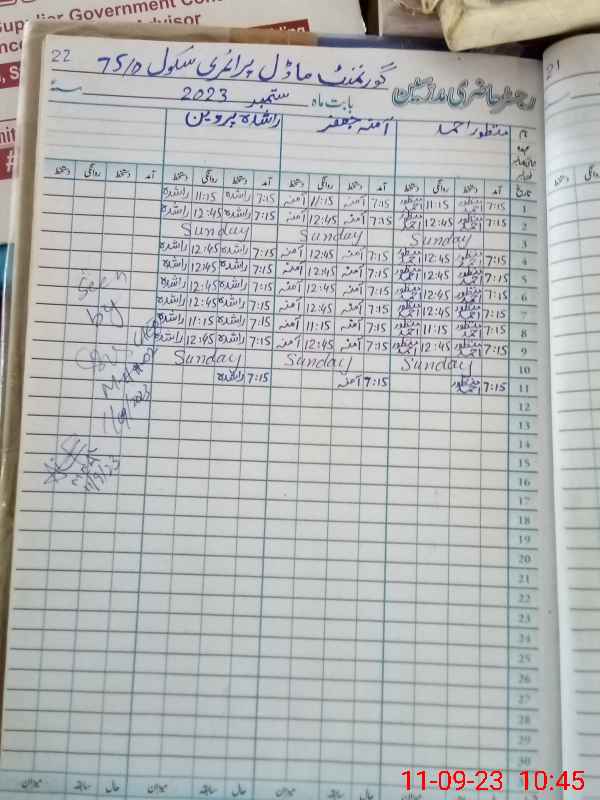 Supplier Government Con
Advisor
22
21
گورنمنٹ ماڈل پرائمری سکول 75/D
رجسٹر حاضری مدرسین بابت ماہ ستمبر 2023
منظور احمد آمنہ جعفر راشدہ پروین
تاریخ آمد دستخط روانگی دستخط آمد دستخط روانگی دستخط آمد دستخط روانگی دستخط آمد دستخط روانگی دستخط
1 7:15 منظور احمد 11:15 منظور احمد 7:15 آمنہ 11:15 آمنہ 7:15 راشدہ 11:15 راشدہ
2 7:15 منظور احمد 12:45 منظور احمد 7:15 آمنہ 12:45 آمنہ 7:15 راشدہ 12:45 راشدہ
3 Sunday Sunday Sunday
4 7:15 منظور احمد 12:45 منظور احمد 7:15 آمنہ 12:45 آمنہ 7:15 راشدہ 12:45 راشدہ
5 7:15 منظور احمد 12:45 منظور احمد 7:15 آمنہ 12:45 آمنہ 7:15 راشدہ 12:45 راشدہ
6 7:15 منظور احمد 12:45 منظور احمد 7:15 آمنہ 12:45 آمنہ 7:15 راشدہ 12:45 راشدہ
7 7:15 منظور احمد 12:45 منظور احمد 7:15 آمنہ 12:45 آمنہ 7:15 راشدہ 12:45 راشدہ
8 7:15 منظور احمد 11:15 منظور احمد 7:15 آمنہ 11:15 آمنہ 7:15 راشدہ 11:15 راشدہ
9 7:15 منظور احمد 12:45 منظور احمد 7:15 آمنہ 12:45 آمنہ 7:15 راشدہ 12:45 راشدہ
10 Sunday Sunday Sunday
11 7:15 منظور احمد 7:15 آمنہ 7:15 راشدہ
12
13
14
15
16
17
18
19
20
21
22
23
24
25
26
27
28
29
30
Seen
by
11/9/2023
11/9/23
حال سابقہ میزان حال سابقہ میزان حال سابقہ میزان
11-09-23 10:45